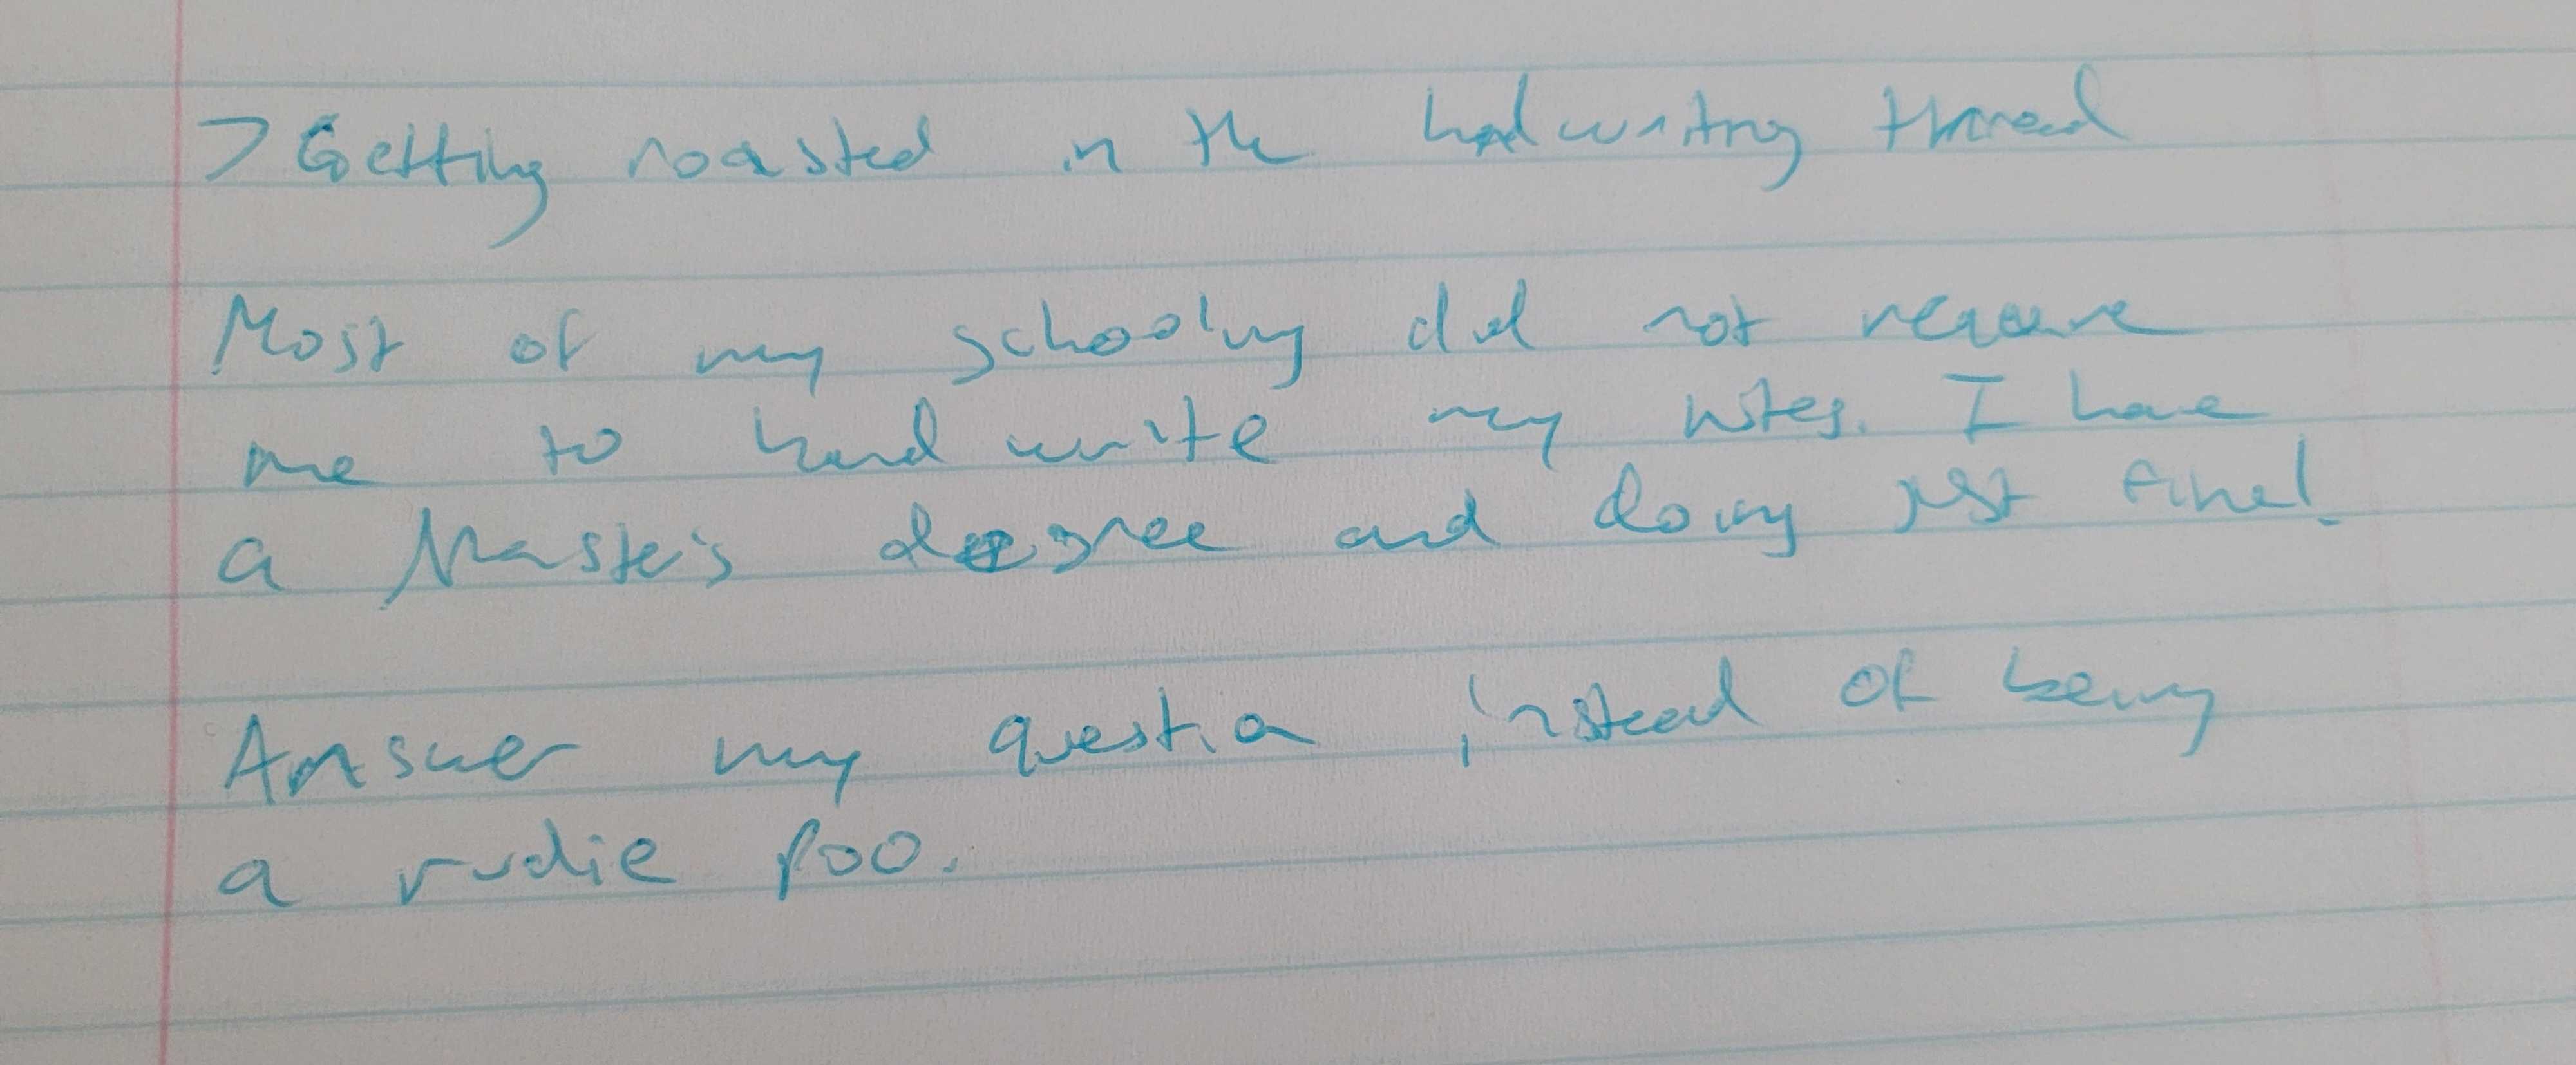 > Getting roasted in the handwriting thread
Most of my schooling did not require
me to hand write my notes. I have
a Master's degree and doing just fine!
Answer my question instead of being
a rudie poo.